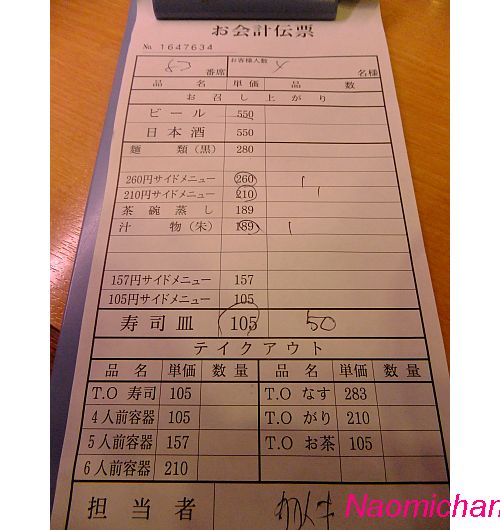 お会計伝票
No. 1647634
番席 お客様人数 4 名様
品 名 単価 品 数
お召し上がり
ビール 550
日本酒 550
麺 類(黒) 280
260円サイドメニュー 260 1
210円サイドメニュー 210 1
茶碗蒸し 189
汁 物(朱) 189 1
157円サイドメニュー 157
105円サイドメニュー 105
寿司皿 105 50
テイクアウト
品名 単価 数量 品名 単価 数量
T.O 寿司 105 T.O なす 283
4人前容器 105 T.O がり 210
5人前容器 157 T.O お茶 105
6人前容器 210
担当者
Naomichan